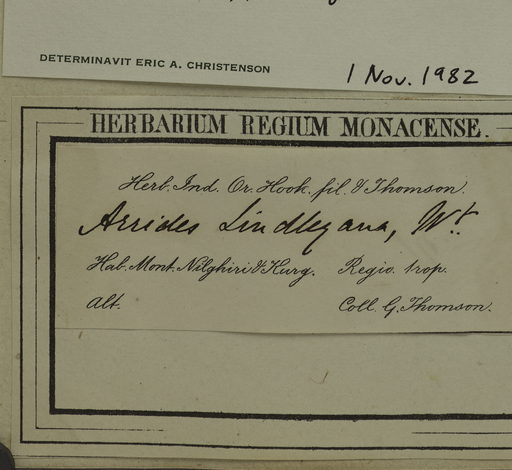 DETERMINAVIT ERIC A. CHRISTENSON
1 Nov. 1982
HERBARIUM REGIUM MONACENSE.
Herb. Ind. Or. Hook. fil. & Thomson.
Aerides Lindleyana, Wt.
Hab. Mont. Nilghiri & Kurg. Regio trop.
Alt. Coll. G. Thomson.